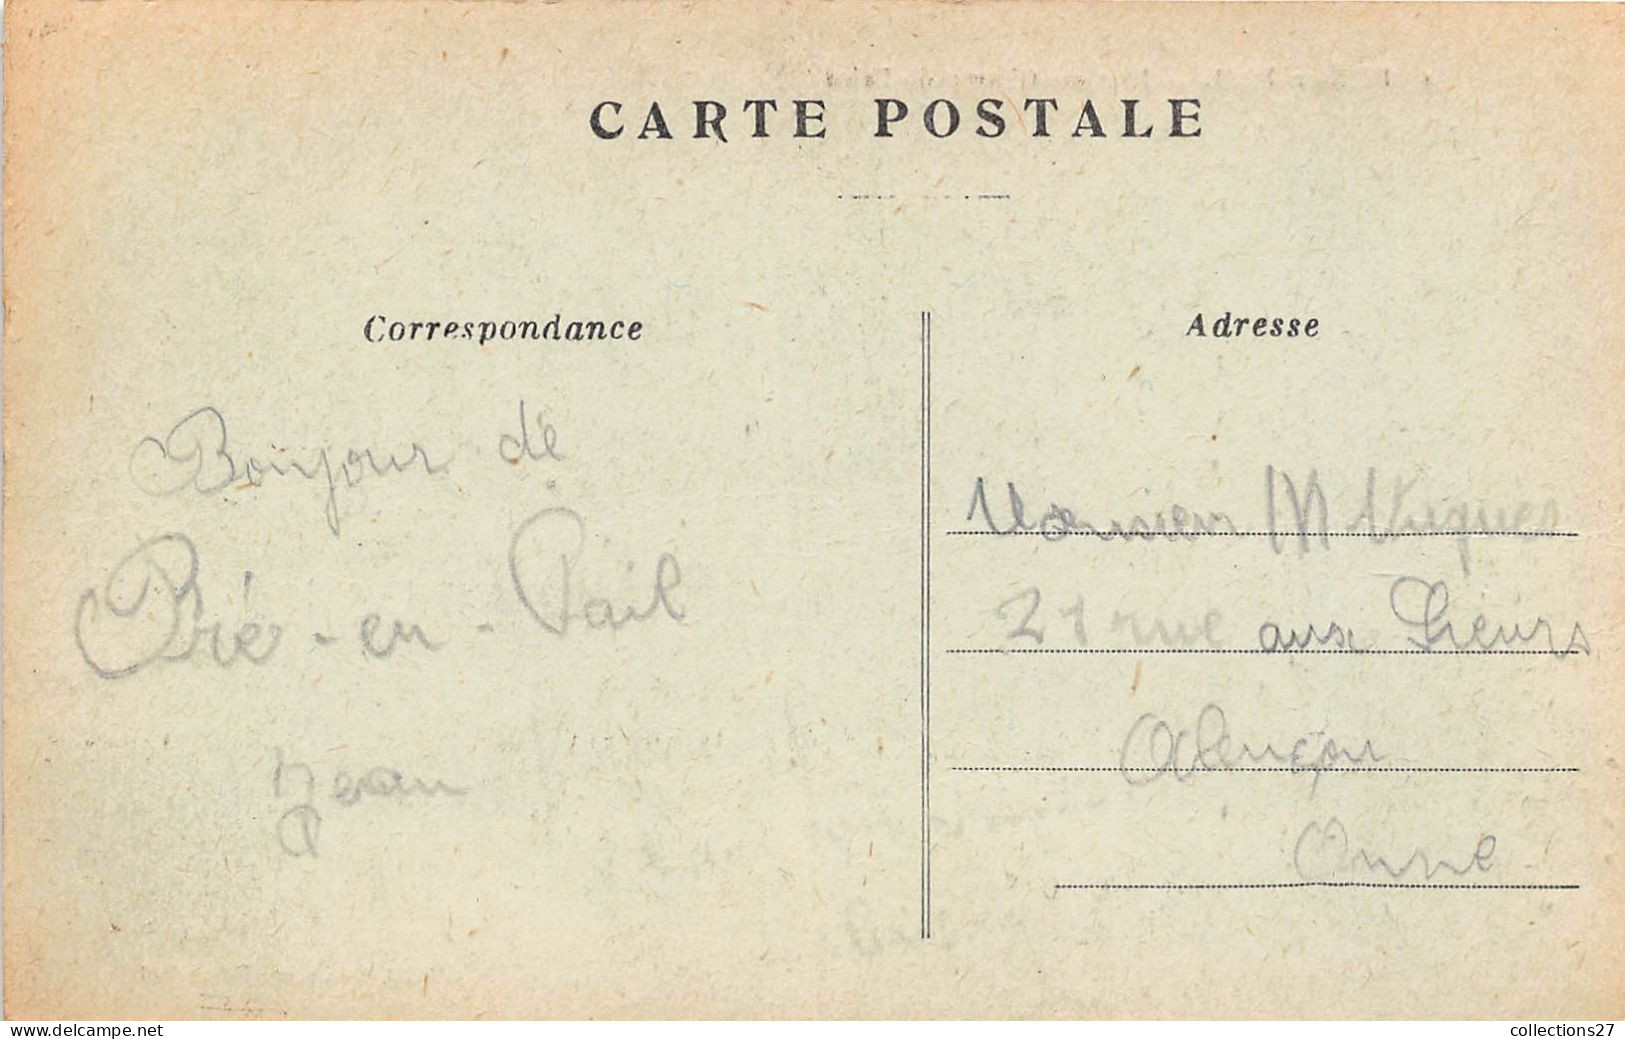 CARTE POSTALE
Correspondance
Adresse
Bonjour de
Pré-en-Pail
Jean
Monsieur M
21 rue aux Sieurs
Alençon
Orne
www.delcampe.net
collections27